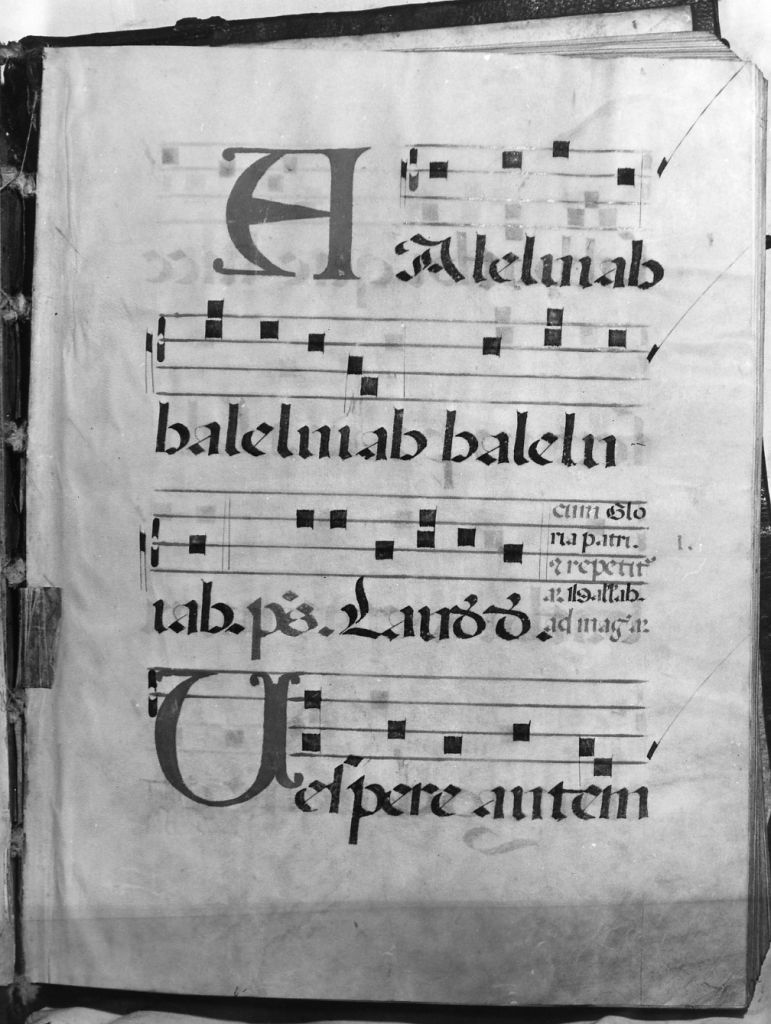 A Aleluiab
baleluiab balelu
iab. ps. Laudd.
cum Glo
ria patri.
& repetit
ar. Psallab.
ad magar
Uespere autem